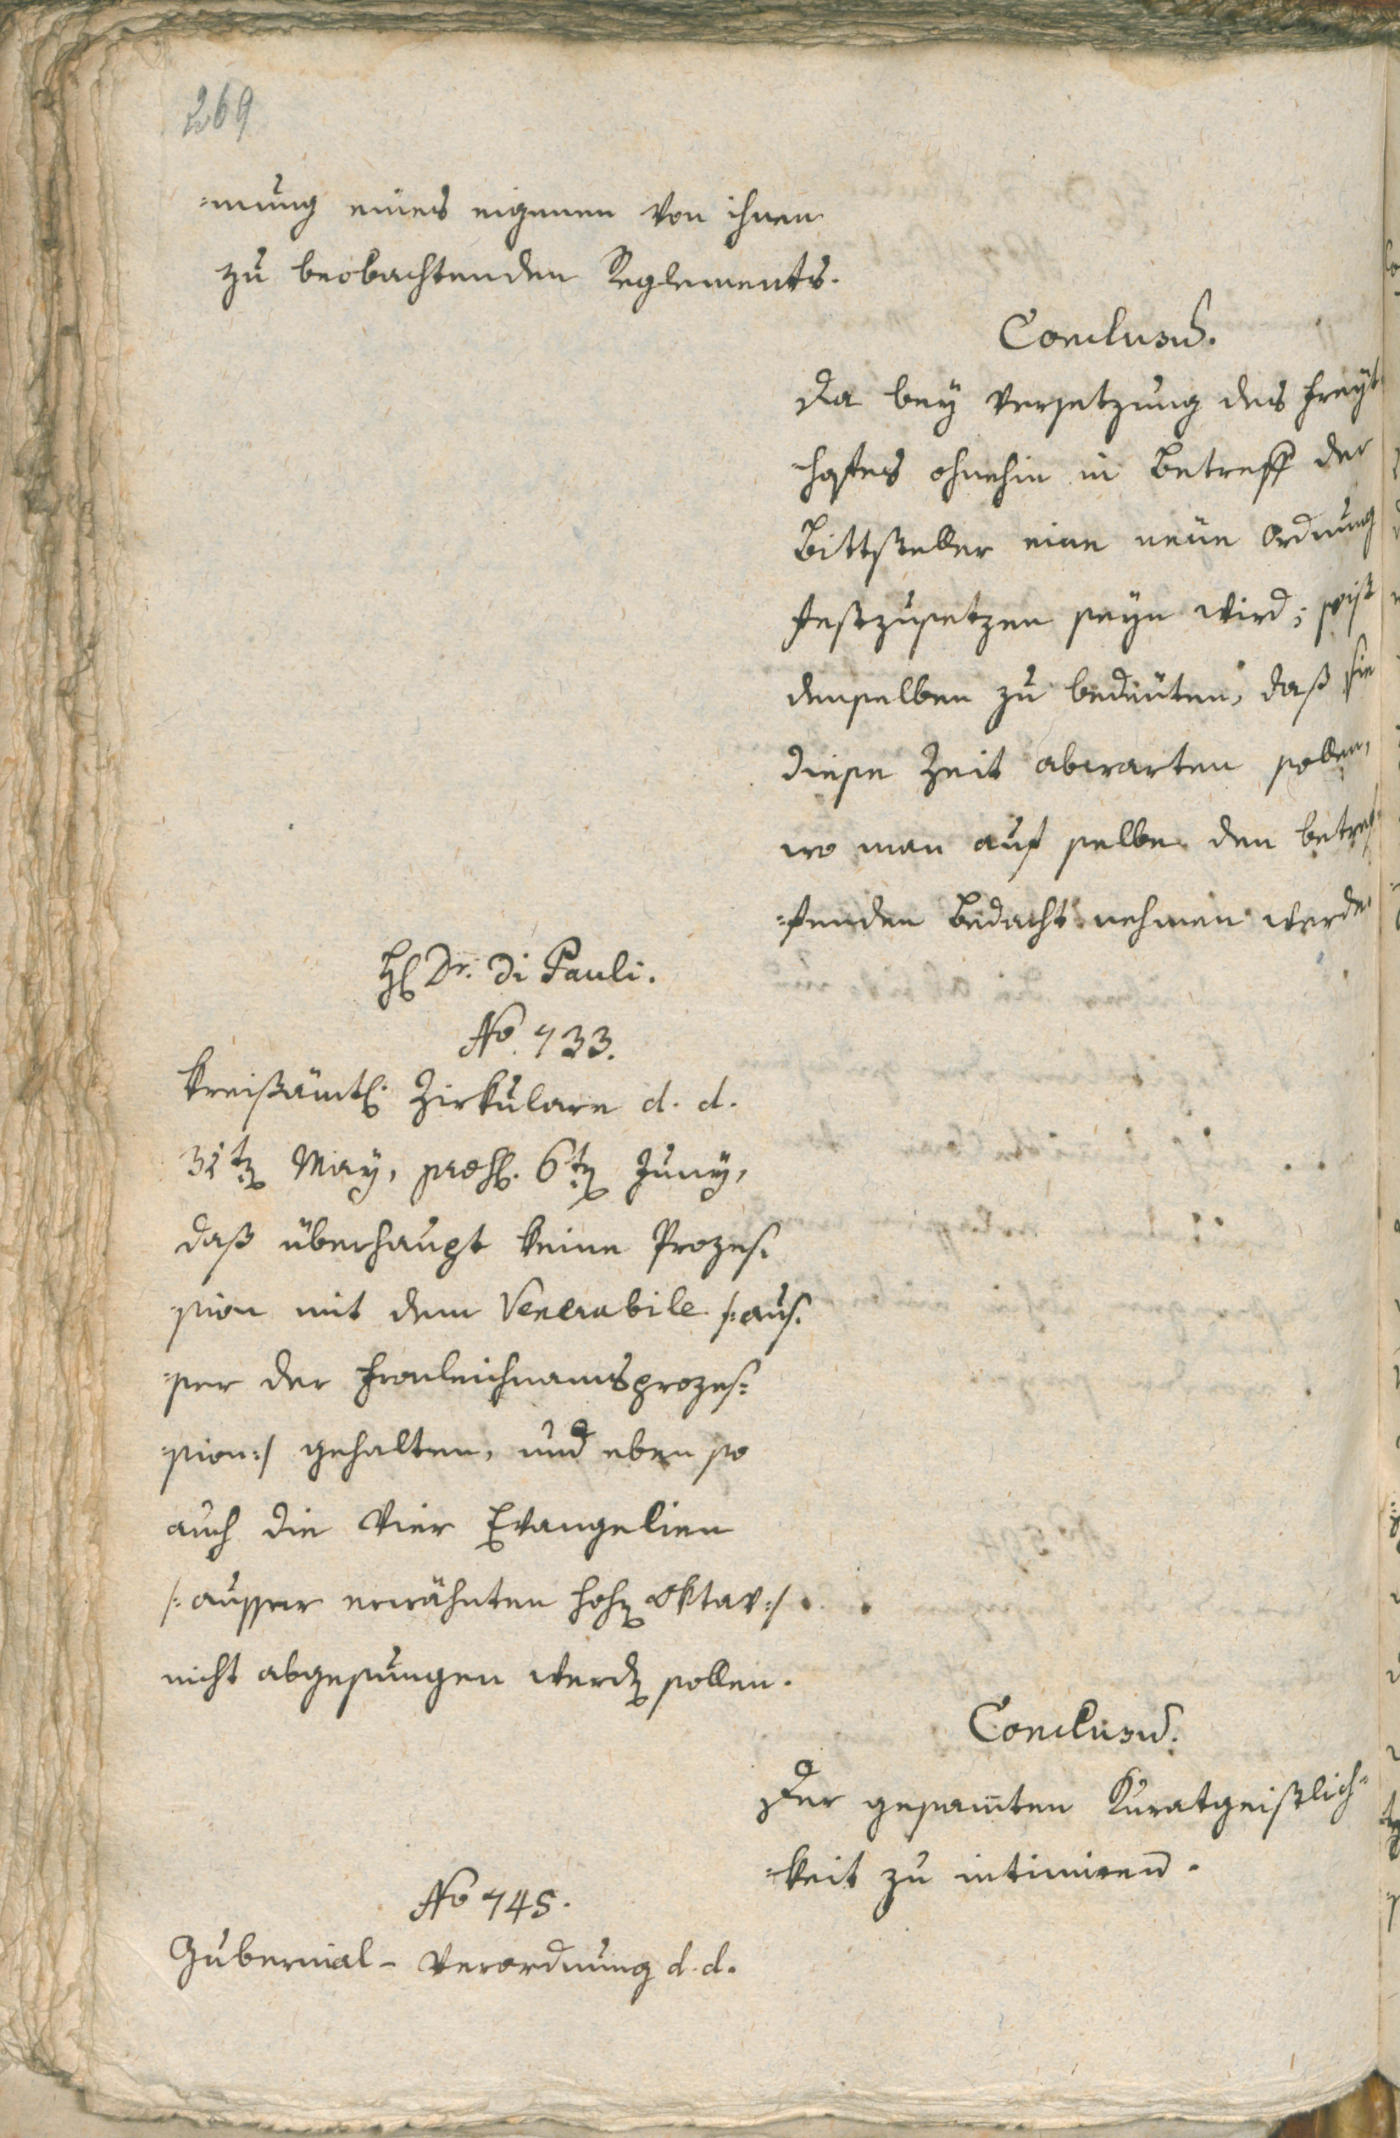 269
-mung eines eigenen von ihnen
zu beobachtenden Reglements.
Conclusũ.
Da bey Versetzung des Freyt
hofes ohnehin in Betreff der
Bittsteller eine neue Ordnung
festzusetzen seyn wird; so ist
denselben zu bedeuten, daß sie
diese Zeit abwarten sollen,
wo man auf selbe den betref-
-fenden Bedacht nehmen werde.
H. Dr. Di Pauli.
No. 733.
Kreißämtl. Zirkulare d. d.
31ten May, präs. 6ten Juny,
daß überhaupt keine Prozes-
sion mit dem Venerabile /: aus-
-ser der Fronleichnamsprozes-
-sion :/ gehalten, und eben so
auch die vier Evangelien
/: ausser erwähnten hohen Oktav :/
nicht abgesungen werden sollen.
Conclusũ.
Der gesam̃ten Kuratgeistlich-
-keit zu intimiren.
No 745.
Gubernial-Verordnung d. d.